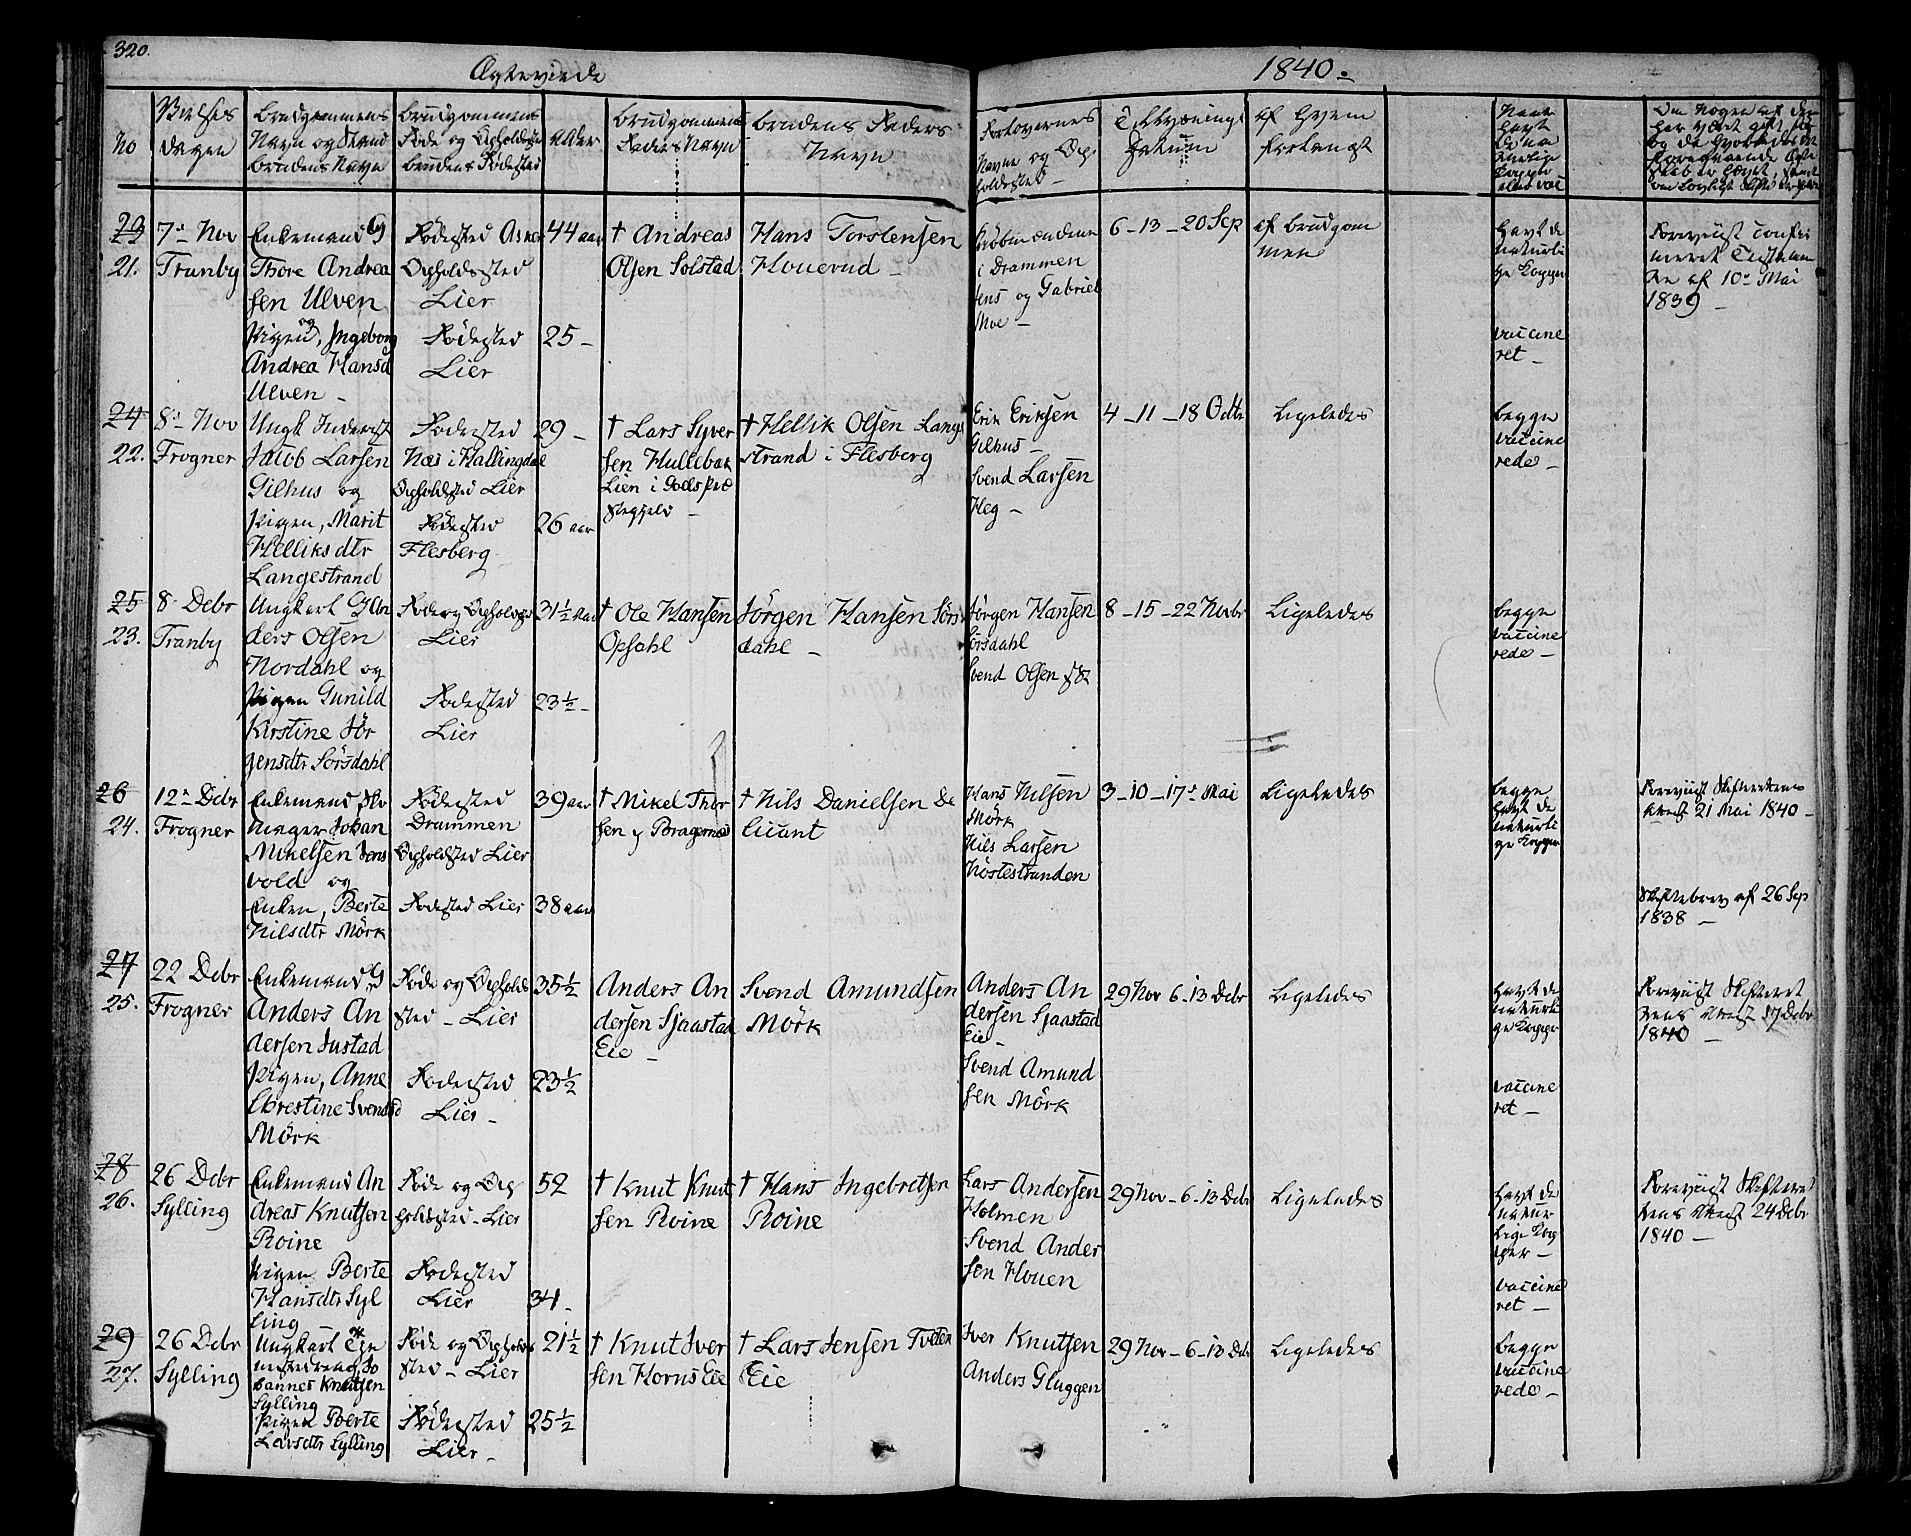 320.
Ægteviede
1840.
No
Vielses
dagen
Brudgommens
Navn og Stand
Brudens Navn
Brudgommens
Føde og Opholdsste
Brudens Fødested
Alder
Brudgommens
Faders Navn
Brudens Faders
Navn
Forlovernes
Navne og Op
holdssted
Tillysnings
Datum
af hvem
forlangt
Om nogen af dem
har været gift før
23
21.
7de Nov
Tranby
Enkemand G
Thore Andrea
sen Ulven
og
Pigen, Ingeborg
Andrea Hansd
Ulven –
Fødested Asker
Opholdssted
Lier
Fødested
Lier
44 aar
25 –
† Andreas
Olsen Solstad
Hans Torstensen
Houerud –
Kjøbmændene
i Drammen
Jens og Gabriel
Moe –
6 – 13 – 20 Sep
af Brudgom
men
havt de
naturli
ge Kopper
vaccine
ret –
Foreviist confir
meret Testamen
te af 10de Mai
1839 –
24
22.
8de Nov
Frogner
Ungk Inderst
Jacob Larsen
Gilhus og
Pigen, Marit
Helliksdtr
Langestrand
Fødested
Næs i Hallingdal
Opholdsted Lier
Fødested
Flesberg
29 –
26 aar
† Lars Syver
sen Hullebak
Lien i Næs Præ
stegjeld –
† Hellik Olsen Lange
strand i Flesberg
Erik Eriksen
Gilhus –
Svend Larsen
Heg –
4 – 11 – 18 Octb
Ligeledes
begge
vaccine
rede –
25
23.
8 Debr
Tranby
Ungkarl G An
ders Olsen
Nordahl og
Pigen Gunild
Kirstine Jør
gensdtr Sørsdahl
Føde og Opholdssted
Lier
Fødested
Lier
31½ aar
23½ –
† Ole Hansen
Opsahl
Jørgen Hansen Sørs
dahl –
Jørgen Hansen
Sørsdahl
Svend Olsen
8 – 15 – 22 Novbr
Ligeledes
begge
vaccine
rede –
26
24.
12te Debr
Frogner
Enkemand, Sko
mager Johan
Mikelsen Jons
vold og
Enken, Berte
Nilsdtr Mørk
Fødested
Drammen
Opholdsted Lier
Fødested Lier
39 aar
38 aar
† Mikel Thor
sen, Bragernes
† Nils Danielsen De
licant
Hans Nilsen
Mørk
Nils Larsen
Nøstestranden
3 – 10 – 17de Mai
Ligeledes
begge
havt de
naturli
ge Kopper
Foreviist Skifterettens
Attest 21 Mai 1840 –
Skiftebrev af 26 Sep
1838 –
27
25.
22 Debr
Frogner
Enkemand G
Anders An
dersen Justad
Pigen, Anne
Chrestine Svensd
Mørk
Føde og Opholds
sted – Lier
Fødested
Lier –
35½
23½
Anders An
dersen Sjaastad
Eie –
Svend Amundsen
Mørk
Anders An
dersen Sjaastad
Eie –
Svend Amund
sen Mørk
29 Nov 6 – 13 Debr
Ligeledes
havt de
naturli
ge Kopper
vaccine
ret –
Foreviist Skifteret
tens Attest 17 Debr
1840 –
28
26.
26 Debr
Sylling
Enkemand An
dreas Knutsen
Roine
Pigen Berte
Hansdtr Syl
ling
Føde og Op
holdssted – Lier
Fødested
Lier
52
34 –
† Knut Knut
sen Roine
† Hans Ingebretsen
Roine
Lars Andersen
Holmen
Svend Ander
sen Houen
29 Nov – 6 – 13 Debr
Ligeledes
havt de
natur
lige Kop
per –
vaccine
ret –
Foreviist Skifteret
tens Attest 24 Debr
1840 –
29
27.
26 Debr
Sylling
Ungkarl
Johannes Knutsen
Sylling
Pigen Berte
Larsdtr Sylling
Føde og Opholds
sted – Lier
Fødested
Lier –
21½
25½
† Knut Iver
sen Horns Eie
† Lars Jensen Tveten
Eie
Iver Knutsen
Anders Gluggen
29 Nov – 6 – 13 Deb
Ligeledes
begge
vaccine
rede –